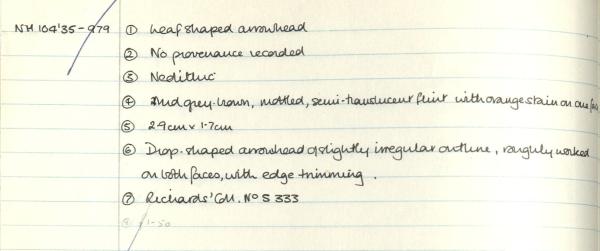 NH 104'35-979 ① Leaf shaped arrowhead
② No provenance recorded
③ Neolithic
④ Mid grey-brown, mottled, semi-translucent flint with orange stain on one face
⑤ 2.9cm x 1.7cm
⑥ Drop-shaped arrowhead of slightly irregular outline, roughly worked
on both faces, with edge trimming.
⑦ Richards' Coll. No S 333